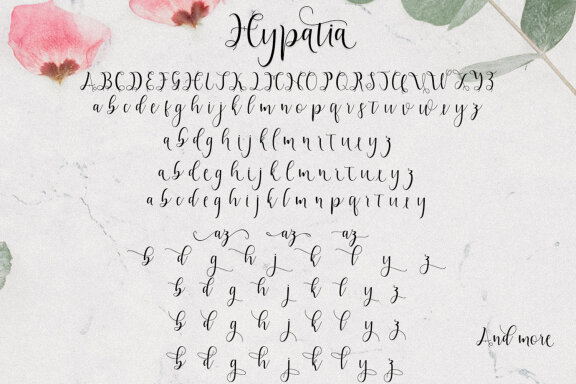 Hypatia
A B C D E F G H I J K L M N O P Q R S T U V W X Y Z
a b c d e f g h i j k l m n o p q r s t u v w x y z
a b d g h i j k l m n r t u e y z
a b d e g h i j k l m n r t u e y z
a b c d e g h i j k l m n p q r t u e y
az az az
b d g h j k l y z
b d g h j k l y z
b d g h j k l y z
b d g h j k l y z
And more